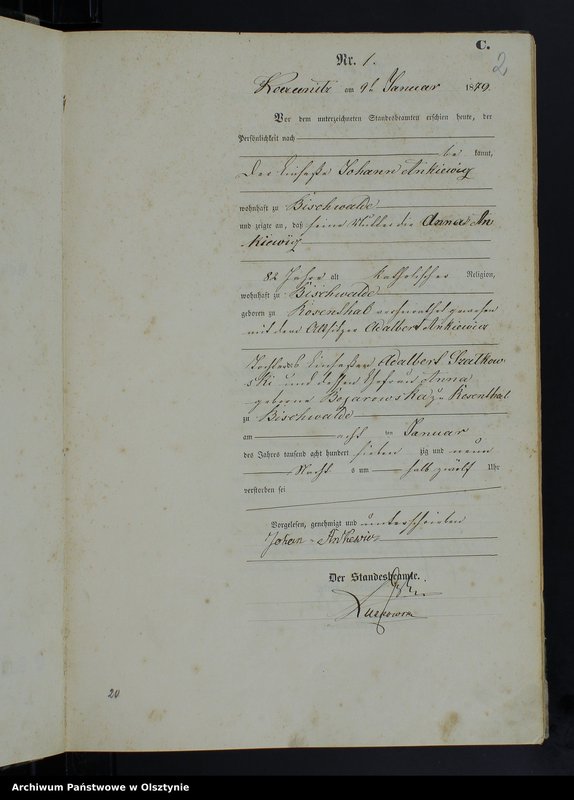 C.
2
Nr. 1.
am 9t Januar 1879.
Vor dem unterzeichneten Standesbeamten erschien heute, der
Persönlichkeit nach
be kannt,
Der Einsasse Johann Ankiewicz
wohnhaft zu Bischwalde
und zeigte an, daß seine Mutter die Anna An
kiewicz
82 Jahre alt katholischer Religion,
wohnhaft zu Bischwalde
geboren zu Rosenthal verheirathet gewesen
mit dem Altsitzer Adalbert Ankiewicz
Tochter des Einsassen Adalbert Szatkow-
ski und dessen Ehefrau Anna
geborne Bojarowska zu Rosenthal
zu Bischwalde
am acht ten Januar
des Jahres tausend acht hundert sieben zig und neun
Nacht s um halb zwölf Uhr
verstorben sei
Vorgelesen, genehmigt und unterschrieben
Johan Ankewicz
Der Standesbeamte.
20
Archiwum Państwowe w Olsztynie